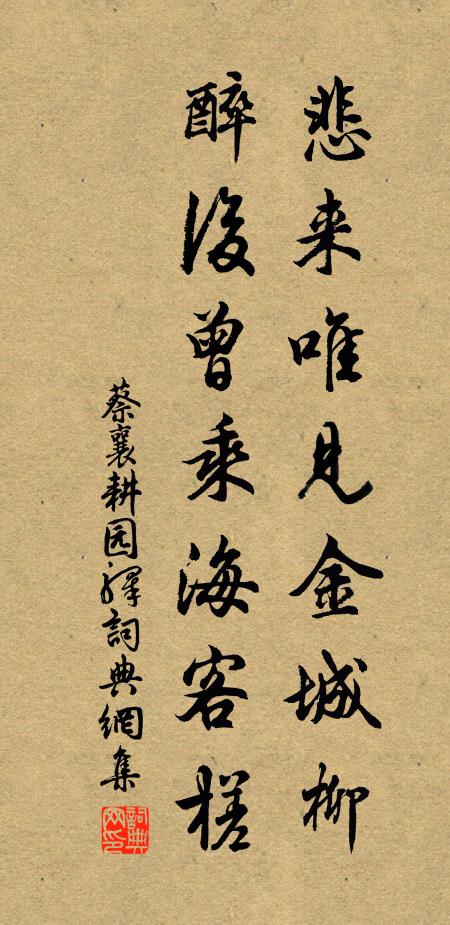 悲来唯見金城柳
醉後曾乘海客槎
蔡襄耕园驿詞典網集
詞典網印